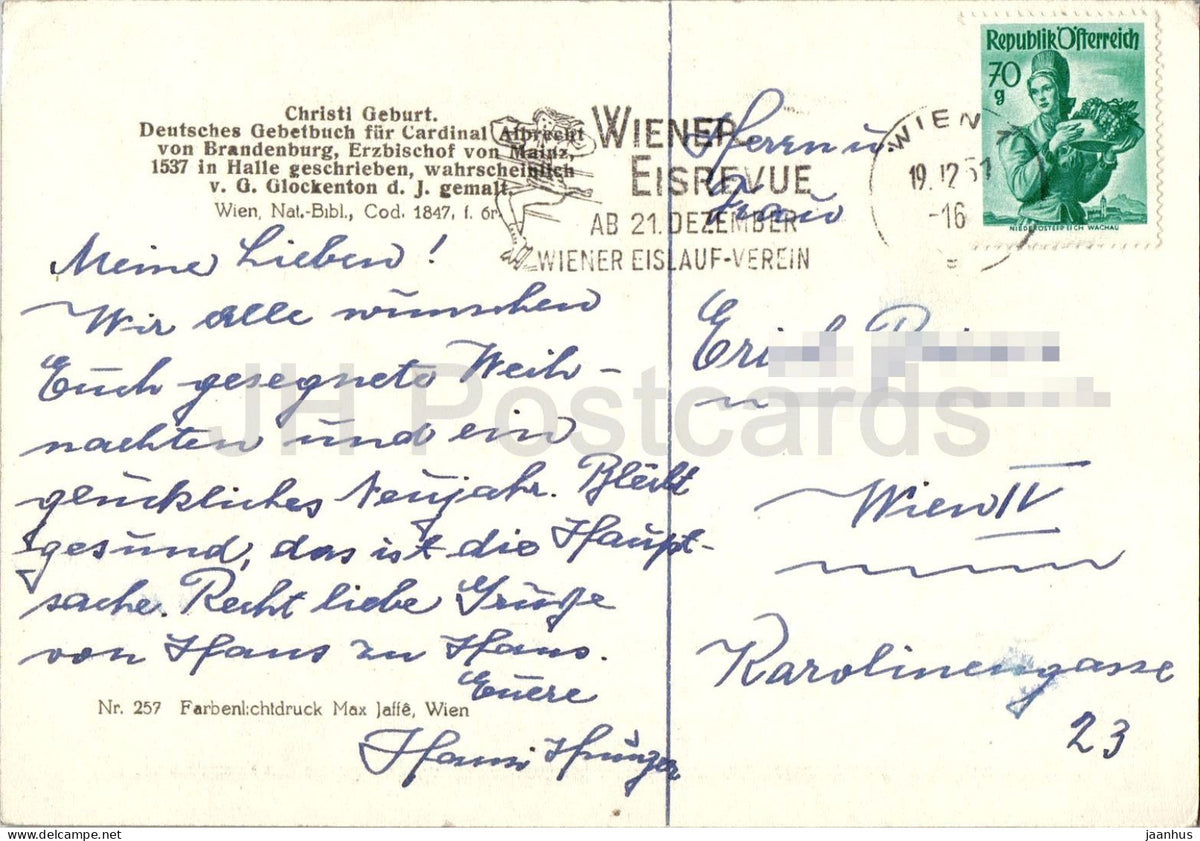 Christi Geburt.
Deutsches Gebetbuch für Cardinal Albrecht
von Brandenburg, Erzbischof von Mainz,
1537 in Halle geschrieben, wahrscheinlich
v. G. Glockenton d. J. gemalt.
Wien, Nat.-Bibl., Cod. 1847, f. 6r
Meine Lieben!
Wir alle wünschen
Euch gesegnete Weih-
nachten und ein
glückliches Neujahr. Bleibt
gesund, das ist die Haupt-
sache. Recht liebe Grüße
von Haus zu Haus.
Euere
Nr. 257 Farbenlichtdruck Max Jaffé, Wien
WIENER
EISREVUE
AB 21. DEZEMBER
WIENER EISLAUF-VEREIN
WIEN
19.12.51
-16
Republik Österreich
70
g
NIEDERÖSTERREICH WACHAU
Herrn u.
Frau
Wien IV
Karolinengasse
23
JH Postcards
jaanhus